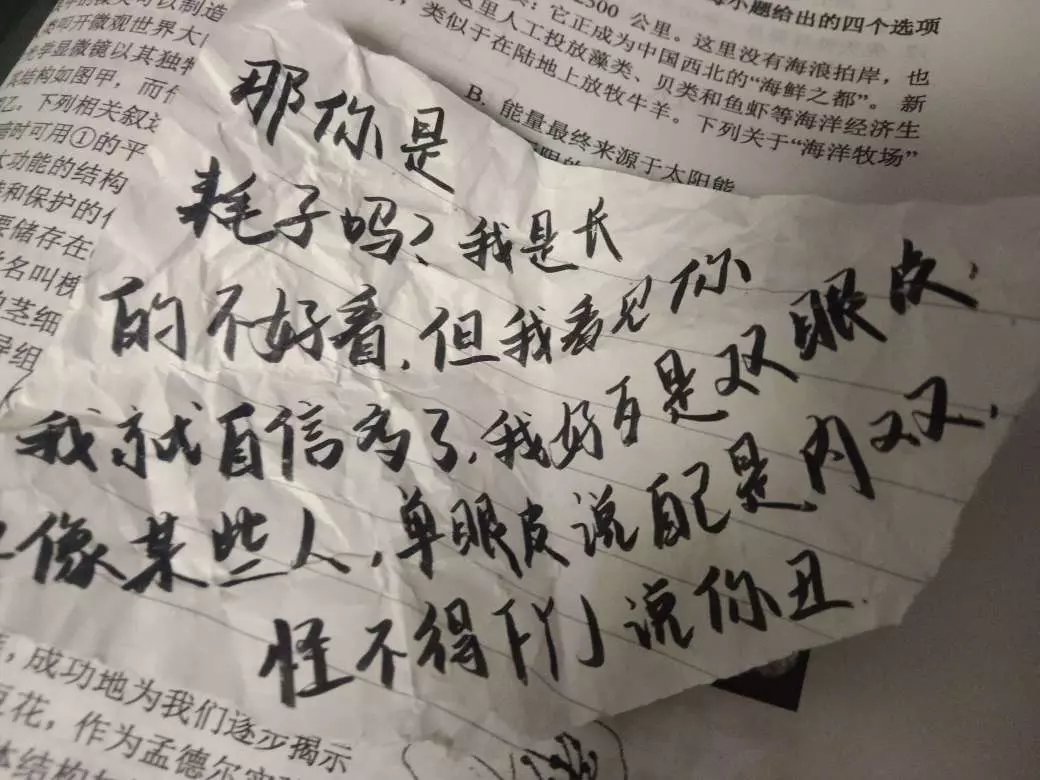 那你是
耗子吗？我是长
的不好看，但我看见你
我就自信多了，我好歹是双眼皮，
像某些人，单眼皮说自己是内双，
怪不得FYJ说你丑
可以制造
开微观世界大
学显微镜以其独特
结构如图甲，而
乙。下列相关叙述
时可用①的平
功能的结构
和保护的
要储存在
名叫
茎细
导组
小题给出的四个选项
2300 公里。这里没有海浪拍岸，也
：它正成为中国西北的“海鲜之都”。新
这里人工投放藻类、贝类和鱼虾等海洋经济生
，类似于在陆地上放牧牛羊。下列关于“海洋牧场”
B. 能量最终来源于太阳能
，成功地为我们逐步揭示
豆花，作为孟德尔实
体结构